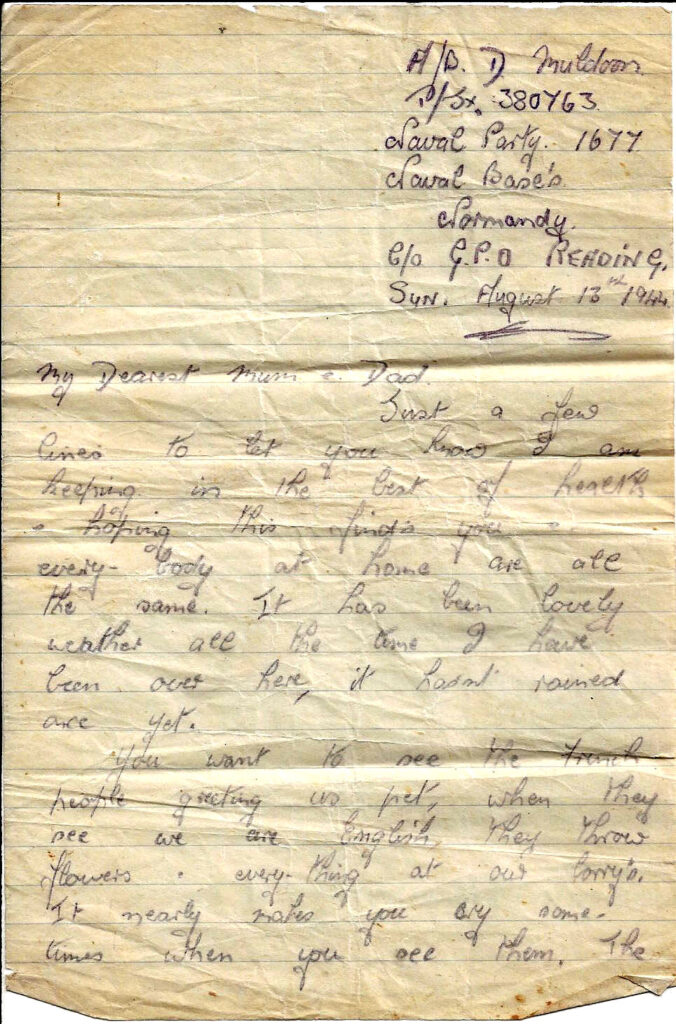 A/B. D. Muldoon.
P/Jx. 380763.
Naval Party. 1677
Naval Base's.
Normandy.
C/o G.P.O READING.
Sun. August 13th 1944.
My Dearest Mum & Dad.
Just a few
lines to let you know I am
keeping in the best of health
& hoping this finds you &
every-body at home are all
the same. It has been lovely
weather all the time I have
been over here, it hasnt rained
are yet.
You want to see the French
people greeting us pet, when they
see we are English, they throw
flowers & every-thing at our lorry's.
It nearly makes you cry some-
times when you see them. The